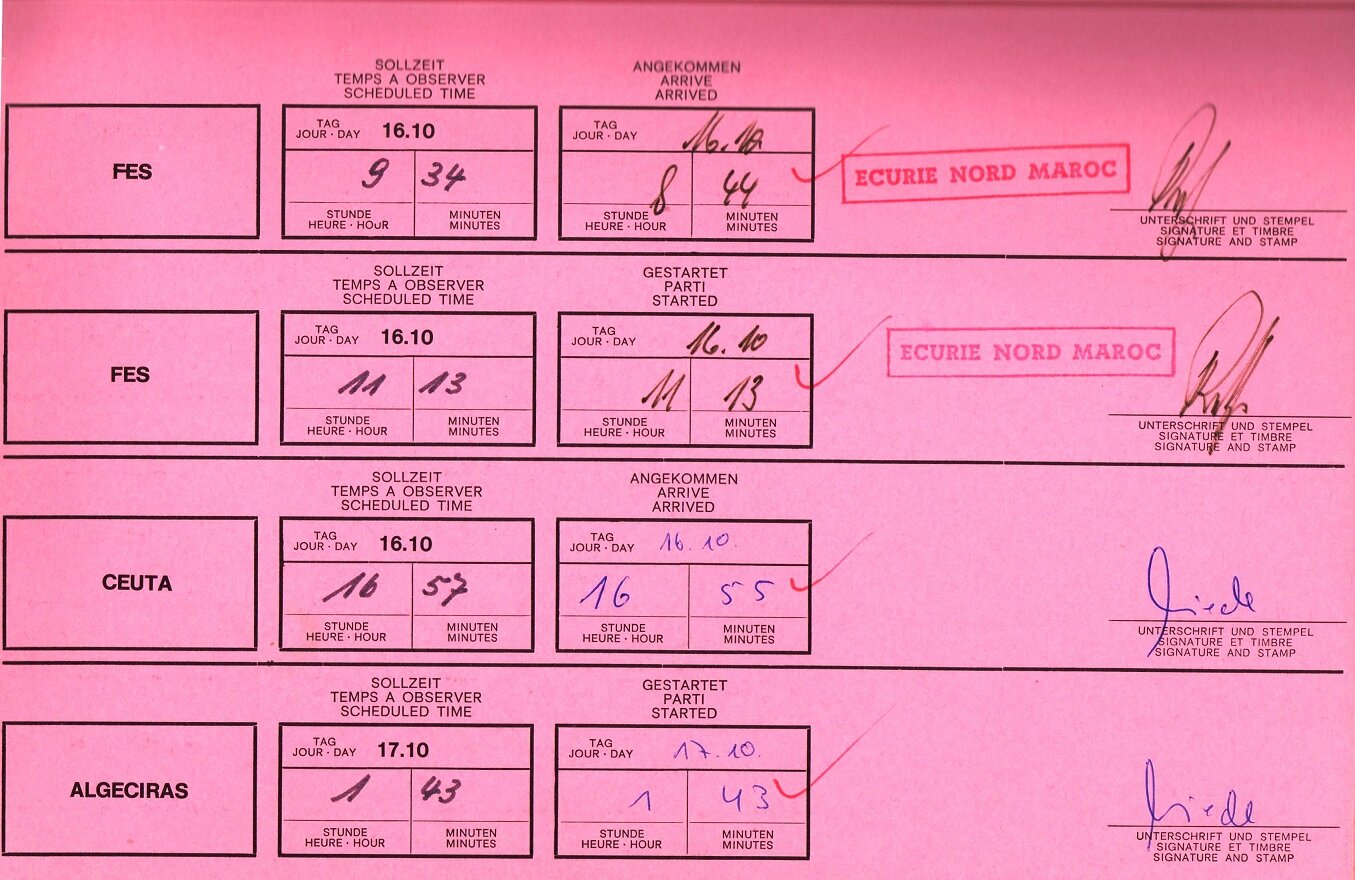 SOLLZEIT
TEMPS A OBSERVER
SCHEDULED TIME
ANGEKOMMEN
ARRIVE
ARRIVED
FES
TAG
JOUR · DAY 16.10
9 34
STUNDE MINUTEN
HEURE · HOUR MINUTES
TAG
JOUR · DAY 16.10
8 44
STUNDE MINUTEN
HEURE · HOUR MINUTES
ECURIE NORD MAROC
UNTERSCHRIFT UND STEMPEL
SIGNATURE ET TIMBRE
SIGNATURE AND STAMP
SOLLZEIT
TEMPS A OBSERVER
SCHEDULED TIME
GESTARTET
PARTI
STARTED
FES
TAG
JOUR · DAY 16.10
11 13
STUNDE MINUTEN
HEURE · HOUR MINUTES
TAG
JOUR · DAY 16.10
11 13
STUNDE MINUTEN
HEURE · HOUR MINUTES
ECURIE NORD MAROC
UNTERSCHRIFT UND STEMPEL
SIGNATURE ET TIMBRE
SIGNATURE AND STAMP
SOLLZEIT
TEMPS A OBSERVER
SCHEDULED TIME
ANGEKOMMEN
ARRIVE
ARRIVED
CEUTA
TAG
JOUR · DAY 16.10
16 57
STUNDE MINUTEN
HEURE · HOUR MINUTES
TAG
JOUR · DAY 16.10.
16 55
STUNDE MINUTEN
HEURE · HOUR MINUTES
UNTERSCHRIFT UND STEMPEL
SIGNATURE ET TIMBRE
SIGNATURE AND STAMP
SOLLZEIT
TEMPS A OBSERVER
SCHEDULED TIME
GESTARTET
PARTI
STARTED
ALGECIRAS
TAG
JOUR · DAY 17.10
1 43
STUNDE MINUTEN
HEURE · HOUR MINUTES
TAG
JOUR · DAY 17.10.
1 43
STUNDE MINUTEN
HEURE · HOUR MINUTES
UNTERSCHRIFT UND STEMPEL
SIGNATURE ET TIMBRE
SIGNATURE AND STAMP